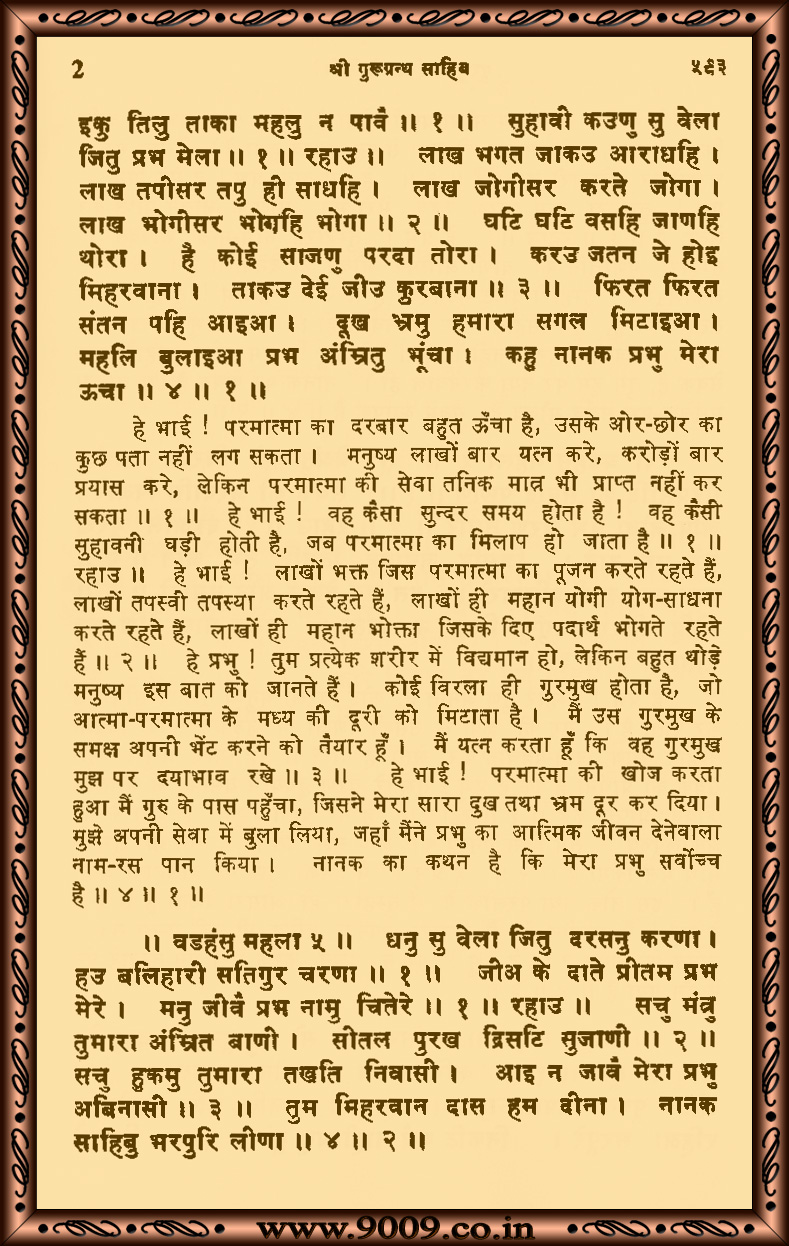 2 श्री गुरूग्रन्थ साहिब ५९३
इकु तिलु ताका महलु न पावै ॥ १ ॥ सुहावी कउणु सु वेला
जितु प्रभ मेला ॥ १ ॥ रहाउ ॥ लाख भगत जाकउ आराधहि ।
लाख तपीसर तपु ही साधहि । लाख जोगीसर करते जोगा ।
लाख भोगीसर भोगहि भोगा ॥ २ ॥ घटि घटि वसहि जाणहि
थोरा । है कोई साजणु परदा तोरा । करउ जतन जे होइ
मिहरवाना । ताकउ देई जीउ कुरबाना ॥ ३ ॥ फिरत फिरत
संतन पहि आइआ । दूख भ्रमु हमारा सगल मिटाइआ ।
महलि बुलाइआ प्रभ अंम्रितु भूंचा । कहु नानक प्रभु मेरा
ऊचा ॥ ४ ॥ १ ॥
हे भाई ! परमात्मा का दरबार बहुत ऊँचा है, उसके ओर-छोर का
कुछ पता नहीं लग सकता । मनुष्य लाखों बार यत्न करे, करोड़ों बार
प्रयास करे, लेकिन परमात्मा की सेवा तनिक मात्र भी प्राप्त नहीं कर
सकता ॥ १ ॥ हे भाई ! वह कैसा सुन्दर समय होता है ! वह कैसी
सुहावनी घड़ी होती है, जब परमात्मा का मिलाप हो जाता है ॥ १ ॥
रहाउ ॥ हे भाई ! लाखों भक्त जिस परमात्मा का पूजन करते रहते हैं,
लाखों तपस्वी तपस्या करते रहते हैं, लाखों ही महान योगी योग-साधना
करते रहते हैं, लाखों ही महान भोक्ता जिसके दिए पदार्थ भोगते रहते
हैं ॥ २ ॥ हे प्रभु ! तुम प्रत्येक शरीर में विद्यमान हो, लेकिन बहुत थोड़े
मनुष्य इस बात को जानते हैं । कोई विरला ही गुरमुख होता है, जो
आत्मा-परमात्मा के मध्य की दूरी को मिटाता है । मैं उस गुरमुख के
समक्ष अपनी भेंट करने को तैयार हूँ । मैं यत्न करता हूँ कि वह गुरमुख
मुझ पर दयाभाव रखे ॥ ३ ॥ हे भाई ! परमात्मा की खोज करता
हुआ मैं गुरु के पास पहुँचा, जिसने मेरा सारा दुख तथा भ्रम दूर कर दिया ।
मुझे अपनी सेवा में बुला लिया, जहाँ मैंने प्रभु का आत्मिक जीवन देनेवाला
नाम-रस पान किया । नानक का कथन है कि मेरा प्रभु सर्वोच्च
है ॥ ४ ॥ १ ॥
॥ वडहंसु महला ५ ॥ धनु सु वेला जितु दरसनु करणा ।
हउ बलिहारी सतिगुर चरणा ॥ १ ॥ जीअ के दाते प्रीतम प्रभ
मेरे । मनु जीवै प्रभ नामु चितेरे ॥ १ ॥ रहाउ ॥ सचु मंत्रु
तुमारा अंम्रित बाणी । सीतल पुरख द्रिसटि सुजाणी ॥ २ ॥
सचु हुकमु तुमारा तखति निवासी । आइ न जावै मेरा प्रभु
अबिनासी ॥ ३ ॥ तुम मिहरवान दास हम दीना । नानक
साहिबु भरपुरि लीणा ॥ ४ ॥ २ ॥
www.9009.co.in